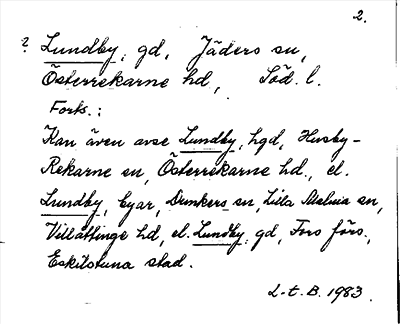 2.
? Lundby, gd, Jäders sn,
Österrekarne hd, Söd. l.
Forts.:
Kan även avse Lundby, hgd, Husby-
Rekarne sn, Österrekarne hd., el.
Lundby, byar, Dunkers sn, Lilla Malma sn,
Villåttinge hd, el. Lundby, gd, Fors förs.,
Eskilstuna stad.
L.t.B. 1983.